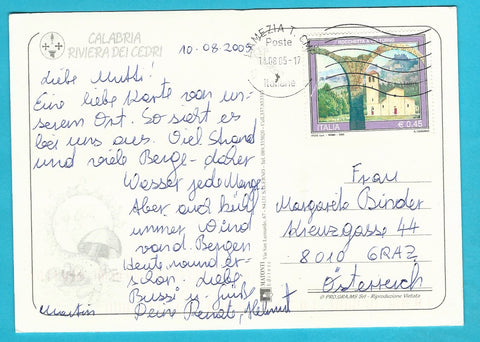 CALABRIA
RIVIERA DEI CEDRI
10.08.2005
Liebe Mutti!
Eine liebe Karte von un-
serem Ort. So sieht es
bei uns aus. Viel Strand
und viele Berge - daher
Wasser jede Menge
Aber auch kühl
immer Wind
von d. Bergen
heute
Bussi u. Grüße
Deine Renate, Helmut
Martin
LAMEZIA T. CMP
Poste
18.08.05-17
Italiane
ROCCHETTA A VOLTURNO
ITALIA
€ 0,45
Frau
Margarete Binder
Kreuzgasse 44
8010 GRAZ
Österreich
© PRO.GRA.MS Srl - Riproduzione Vietata